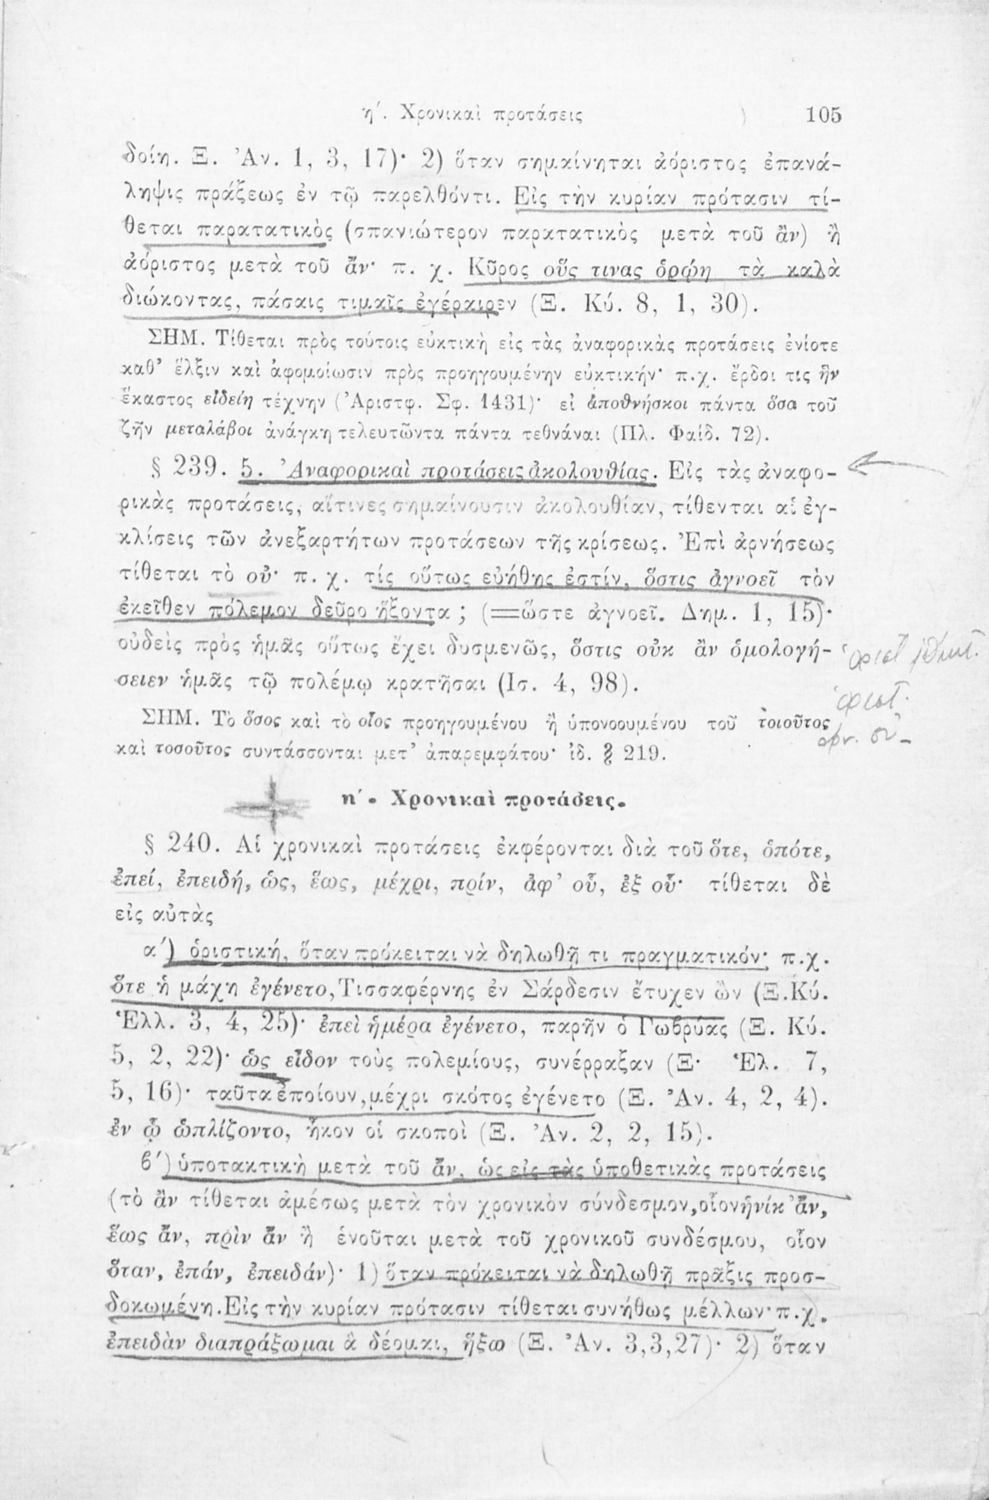 η΄. Χρονικαὶ προτάσεις 105
δοίη. Ξ. Ἀν. 1, 3, 17)· 2) ὅταν σημαίνηται ἀόριστος ἐπανά-
ληψις πράξεως ἐν τῷ παρελθόντι. Εἰς τὴν κυρίαν πρότασιν τί-
θεται παρατατικὸς (σπανιώτερον παρατατικὸς μετὰ τοῦ ἂν) ἢ
ἀόριστος μετὰ τοῦ ἄν· π. χ. Κῦρος οὕς τινας ὁρῴη τὰ καλὰ
διώκοντας, πάσαις τιμαῖς ἐγέραιρεν (Ξ. Κύ. 8, 1, 30).
ΣΗΜ. Τίθεται πρὸς τούτοις εὐκτικὴ εἰς τὰς ἀναφορικὰς προτάσεις ἐνίοτε
καθ’ ἕλξιν καὶ ἀφομοίωσιν πρὸς προηγουμένην εὐκτικήν· π.χ. ἔρδοι τις ἣν
ἕκαστος εἰδείη τέχνην (Ἀριστφ. Σφ. 1431)· εἰ ἀποθνήσκοι πάντα ὅσα τοῦ
ζῆν μεταλάβοι ἀνάγκη τελευτῶντα πάντα τεθνάναι (Πλ. Φαίδ. 72).
§ 239. 5. Ἀναφορικαὶ προτάσεις ἀκολουθίας. Εἰς τὰς ἀναφο-
ρικὰς προτάσεις, αἵτινες σημαίνουσιν ἀκολουθίαν, τίθενται αἱ ἐγ-
κλίσεις τῶν ἀνεξαρτήτων προτάσεων τῆς κρίσεως. Ἐπὶ ἀρνήσεως
τίθεται τὸ οὐ· π. χ. τίς οὕτως εὐήθης ἐστίν, ὅστις ἀγνοεῖ τὸν
ἐκεῖθεν πόλεμον δεῦρο ἥξοντα ; (=ὥστε ἀγνοεῖ. Δημ. 1, 15)·
οὐδεὶς πρὸς ἡμᾶς οὕτως ἔχει δυσμενῶς, ὅστις οὐκ ἂν ὁμολογή-
σειεν ἡμᾶς τῷ πολέμῳ κρατῆσαι (Ισ. 4, 98).
ὁριστ.
ἀρν. οὐ-
ΣΗΜ. Τὸ ὅσος καὶ τὸ οἷος προηγουμένου ἢ ὑπονοουμένου τοῦ τοιοῦτος
καὶ τοσοῦτος συντάσσονται μετ’ ἀπαρεμφάτου· ἰδ. § 219.
η΄. Χρονικαὶ προτάσεις.
§ 240. Αἱ χρονικαὶ προτάσεις ἐκφέρονται διὰ τοῦ ὅτε, ὁπότε,
ἐπεί, ἐπειδή, ὡς, ἕως, μέχρι, πρίν, ἀφ’ οὗ, ἐξ οὗ· τίθεται δὲ
εἰς αὐτὰς
α΄) ὁριστική, ὅταν πρόκειται νὰ δηλωθῇ τι πραγματικόν· π.χ.
ὅτε ἡ μάχη ἐγένετο, Τισσαφέρνης ἐν Σάρδεσιν ἔτυχεν ὢν (Ξ.Κύ.
Ἑλλ. 3, 4, 25)· ἐπεὶ ἡμέρα ἐγένετο, παρῆν ὁ Γωβρύας (Ξ. Κύ.
5, 2, 22)· ὡς εἶδον τοὺς πολεμίους, συνέρραξαν (Ξ· Ἑλ. 7,
5, 16)· ταῦτα ἐποίουν, μέχρι σκότος ἐγένετο (Ξ. Ἀν. 4, 2, 4).
ἐν ᾧ ὡπλίζοντο, ἧκον οἱ σκοποὶ (Ξ. Ἀν. 2, 2, 15).
β΄) ὑποτακτικὴ μετὰ τοῦ ἄν, ὡς εἰς τὰς ὑποθετικὰς προτάσεις
(τὸ ἂν τίθεται ἀμέσως μετὰ τὸν χρονικὸν σύνδεσμον, οἷον ἡνίκ’ ἄν,
ἕως ἄν, πρὶν ἂν ἢ ἑνοῦται μετὰ τοῦ χρονικοῦ συνδέσμου, οἷον
ὅταν, ἐπάν, ἐπειδάν)· 1) ὅταν πρόκειται νὰ δηλωθῇ πρᾶξις προσ-
δοκωμένη. Εἰς τὴν κυρίαν πρότασιν τίθεται συνήθως μέλλων· π.χ.
ἐπειδὰν διαπράξωμαι ἃ δέομαι, ἥξω (Ξ. Ἀν. 3,3,27)· 2) ὅταν